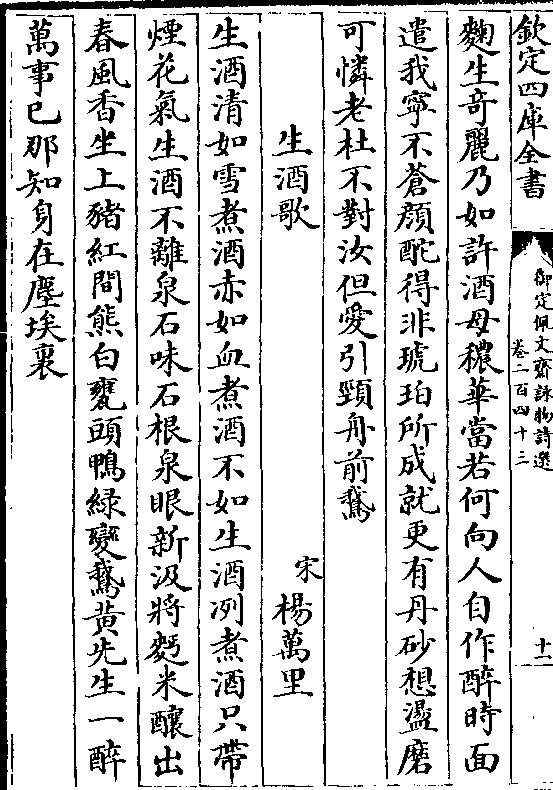 欽定四庫全書
御定佩文齋詠物詩選
卷二百四十三
十一
麴生奇麗乃如許酒母穠華當若何向人自作醉時面
遣我寧不蒼顔酡得非琥珀所成就更有丹砂想盪磨
可憐老杜不對汝但愛引頸舟前鵞
生酒歌
宋楊萬里
生酒清如雪煮酒赤如血煮酒不如生酒冽煮酒只帶
煙花氣生酒不離泉石味石根泉眼新汲將麪米釀出
春風香坐上豬紅間熊白甕頭鴨綠變鵞黃先生一醉
萬事已那知身在塵埃裏